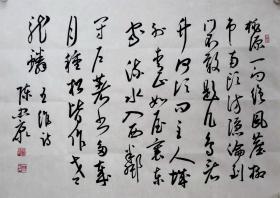 桃源一向绝風塵柳
市南头访隐淪到
门不敢题凡鸟看
竹何须问主人城
外青山如屋裏東
家流水入西鄰
闭户著书多岁
月種松皆作老
龙鳞 王维诗
陈